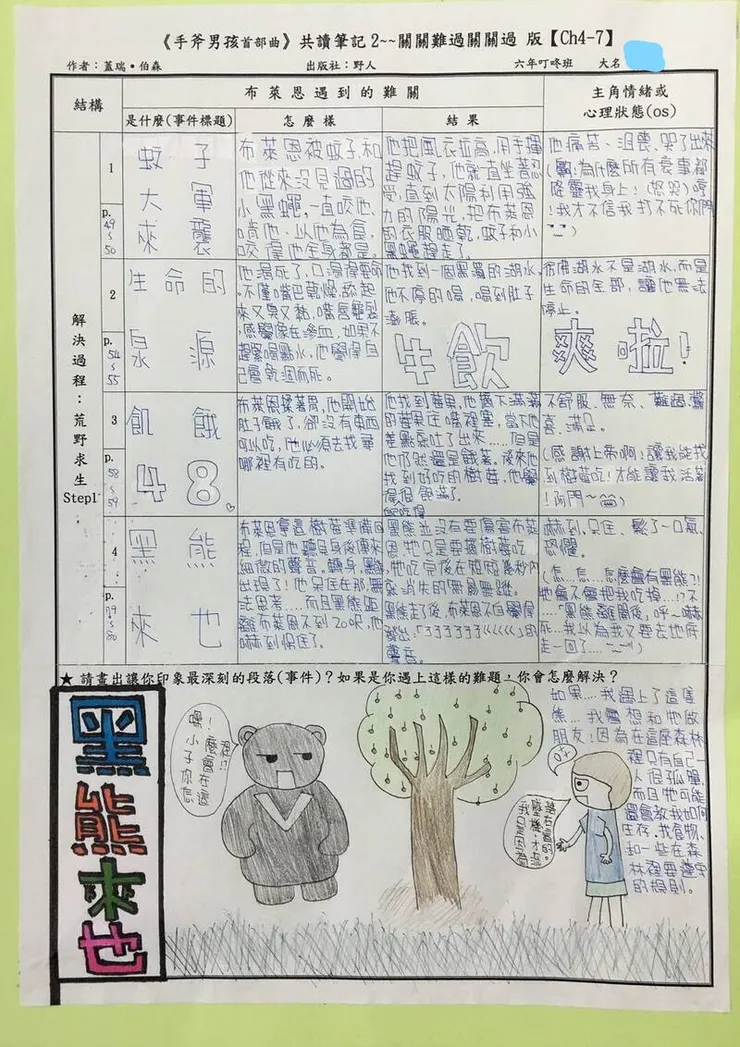 《手斧男孩首部曲》共讀筆記 2~~關關難過關關過 版【Ch4-7】
作者：蓋瑞•伯森 出版社：野人 六年叮咚班 大名
結構
布萊恩遇到的難關
是什麼(事件標題)
怎麼樣
結果
主角情緒或
心理狀態(os)
解決過程：荒野求生
Step1
1
p.
49
50
蚊子
大軍
來襲
布萊恩被蚊子和
他從來沒見過的
小黑蠅,一直咬他、
叮他、以他為食,
咬得他全身都是。
他把風衣拉高,用手揮
趕蚊子,他就直坐著忍
受,直到太陽利用強
力的陽光,把布萊恩
的衣服晒乾,蚊子和小
黑蠅趕走了。
他痛苦、沮喪、哭了出來
為什麼所有衰事都
降靈我身上!(怒哭)哼
!我才不信我打不死你們
2
p.
54
55
生命的
泉源
他渴死了,口渴得要命
。不僅嘴巴乾燥,舔起
來又臭又黏,嘴唇龜裂
,感覺像在滲血,如果不
趕緊喝點水,他覺得自
己會乾涸而死。
他找到一個黑濁的湖水,
他不停的喝,喝到肚子
澎脹。
牛飲
彷彿湖水不是湖水,而是
生命的全部,讓他無法
停止。
爽啦!
3
p.
58
59
飢餓
48
布萊恩揉著胃,他開始
肚子餓了,卻沒有東西
可以吃,他必須去找尋
哪裡有吃的。
他找到莓果,他摘下滿滿
的莓果往嘴裡塞,當下他
差點惡吐了出來……但是
他仍然還是餓著。後來他
找到好吃的樹莓,他覺
得很飽滿了。
不舒服、無奈、難過、驚
喜、滿足。
(感謝上帝啊!讓我能找
到樹莓吃!才能讓我活著
!阿門~
4
p.
79
80
黑熊
來也
布萊恩拿還樹莓準備回
程,但是他聽見身後傳來
細微的聲音。轉身,黑熊
出現了!他呆住在那,無
法思考……而且黑熊距
離布萊恩不到20呎,他
嚇到愣住了。
黑熊並沒有要傷害布萊
恩,牠只是要摘樹莓吃
。牠吃完後在短短幾秒內
,就消失的無影無蹤。
黑熊走了後,布萊恩不自覺得
發出,「ㄋㄋㄋㄋㄋㄋㄑㄑㄑㄑㄑ」的
聲音。
嚇到、呆住、鬆了一口氣、
恐懼。
(怎…怎…怎麼會有黑熊?!
牠會不會把我吃掉…!?不
…「黑熊離開後,呼~嚇
死…我以為我又要去地府
走一回了…
★ 請畫出讓你印象最深刻的段落(事件)？如果是你遇上這樣的難題，你會怎麼解決？
黑熊來也
嘿!
小子你怎
麼會在這
裡!?
我只是因為
如果…我遇上了這隻
熊…我會想和牠做
朋友!因為在這座森林
裡只有自己一
人很孤單,
而且牠可能
還會教我如何
生存、找食物、
和一些在森
林裡要遵守
的規則。